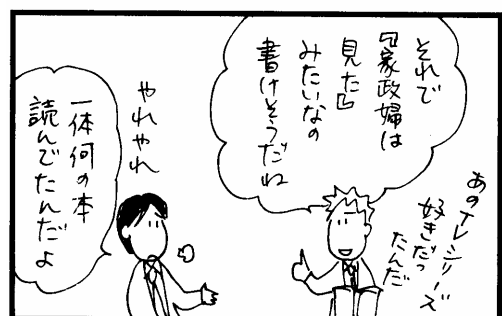 それで
『家政婦は
見た』
みたいなの
書けそうだね
あのテレビシリーズ
好きだっ
たんだ
やれやれ
一体何の本
読んでたんだよ